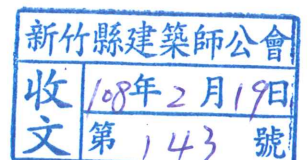 新竹縣建築師公會
收文
108年2月19日
第143號